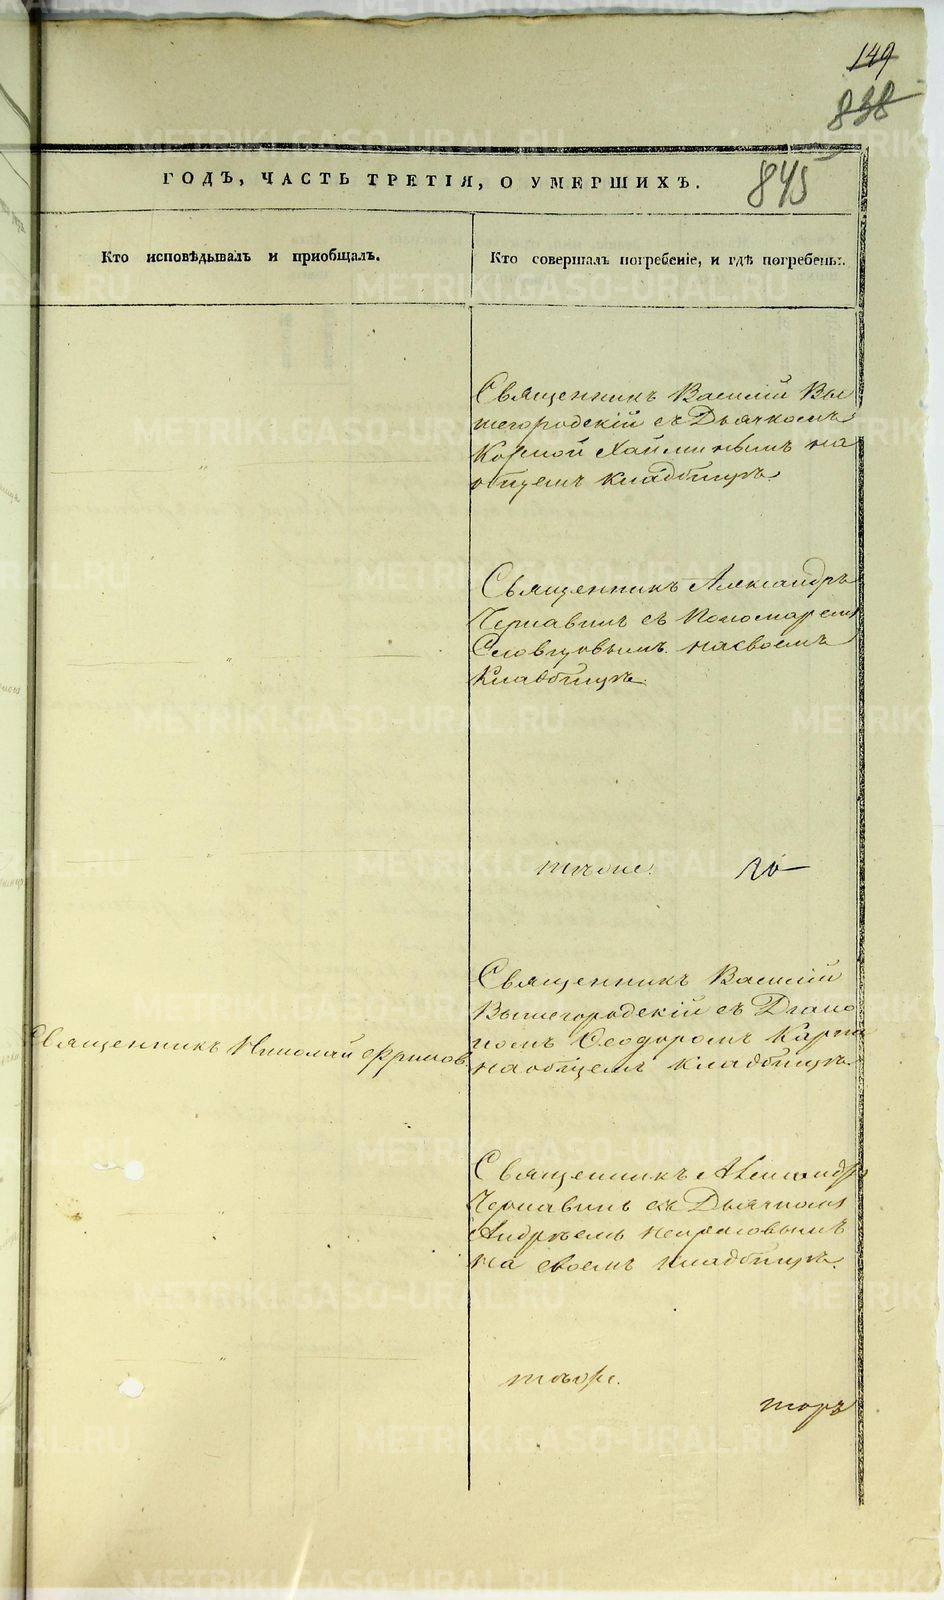 149
838
845
ГОДЪ, ЧАСТЬ ТРЕТІЯ, О УМЕРШИХЪ.
Кто исповѣдывалъ и приобщалъ.
Кто совершалъ погребеніе, и гдѣ погребены.
Священникъ Василій Вы
шегородскій съ Дьячкомъ
Козмой Хайминымъ на
общемъ кладбищѣ.
Священникъ Александръ
Чернавинъ съ Пономаремъ
Словцовымъ на своемъ
Кладбищѣ.
тѣже.
Священникъ Василій
Вышегородскій съ Диако
номъ Ѳеодоромъ
на общемъ кладбищѣ.
Священникъ Николай
Священникъ Александръ
Чернавинъ съ Дьячкомъ
Андреемъ
на своемъ кладбищѣ.
тоже.
METRIKI.GASO-URAL.RU